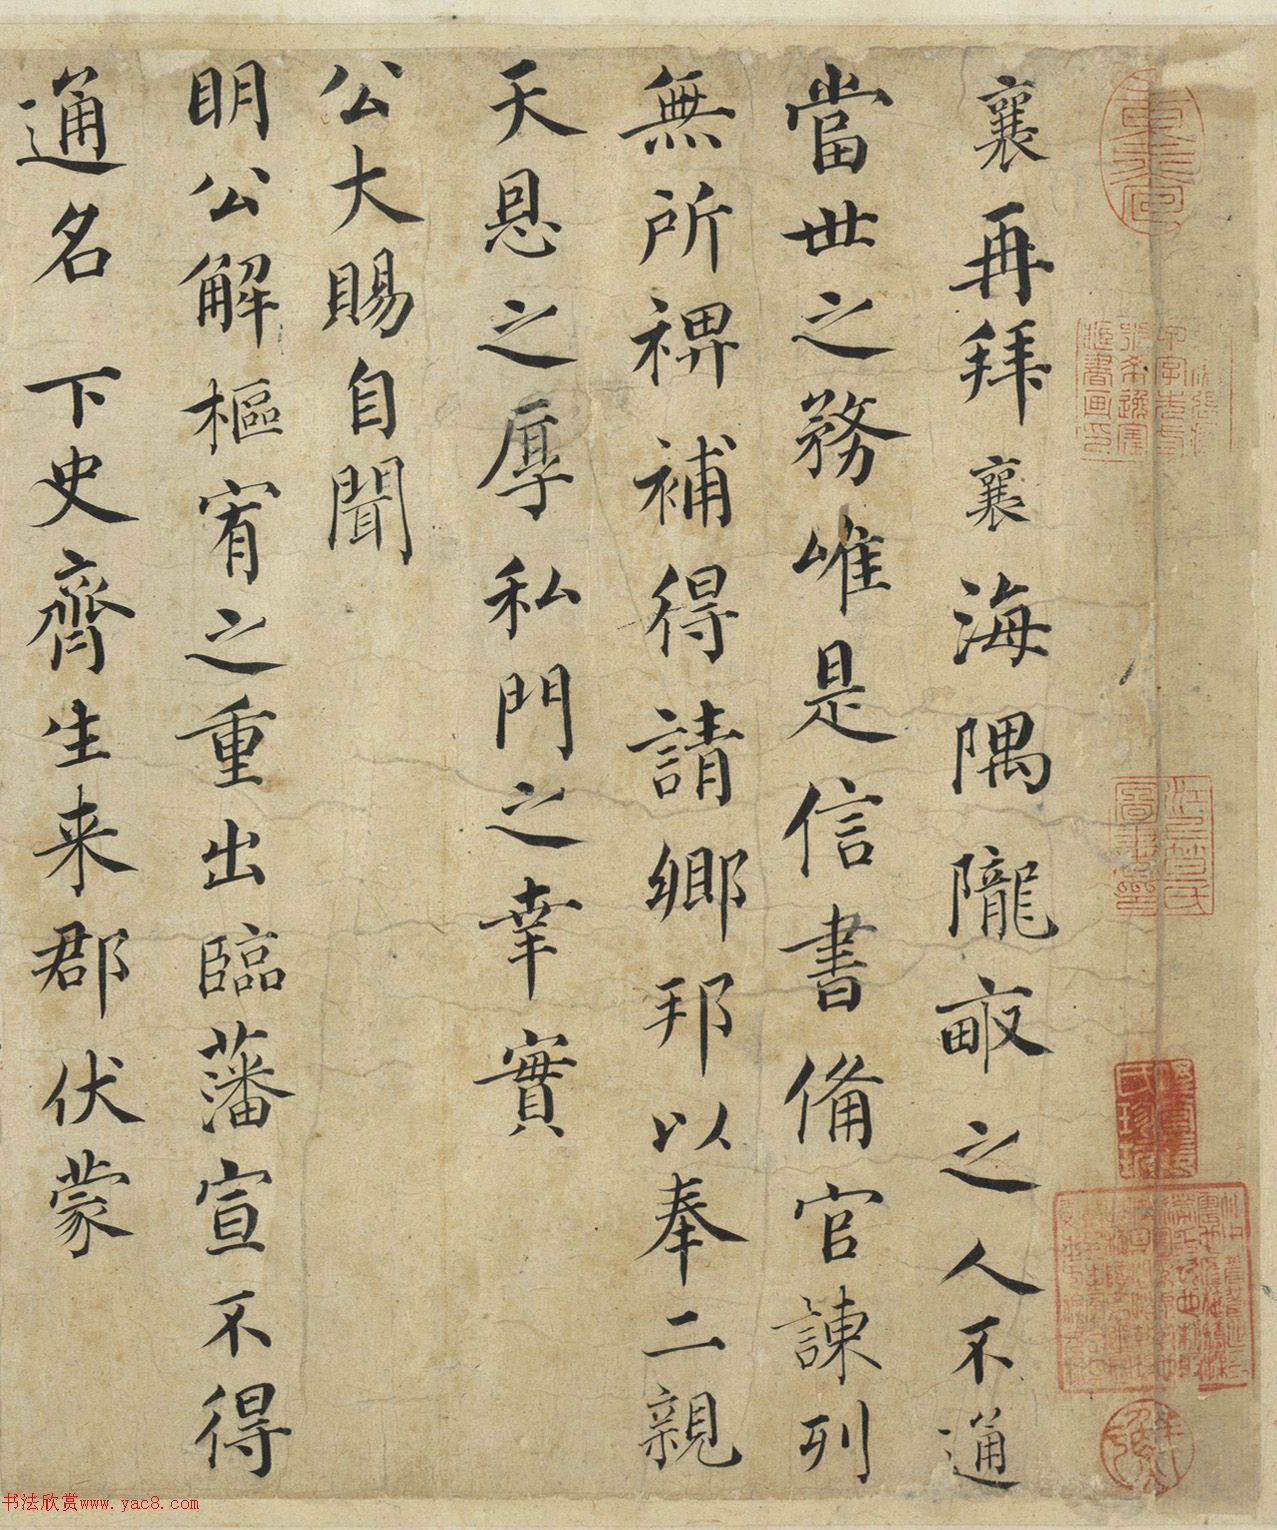 襄再拜襄海隅隴畝之人不通
當世之務唯是信書備官諫列
無所裨補得請鄉邦以奉二親
天恩之厚私門之幸實
公大賜自聞
明公解樞宥之重出臨藩宣不得
通名 下史齊生来郡伏蒙
书法欣赏www.yac8.com